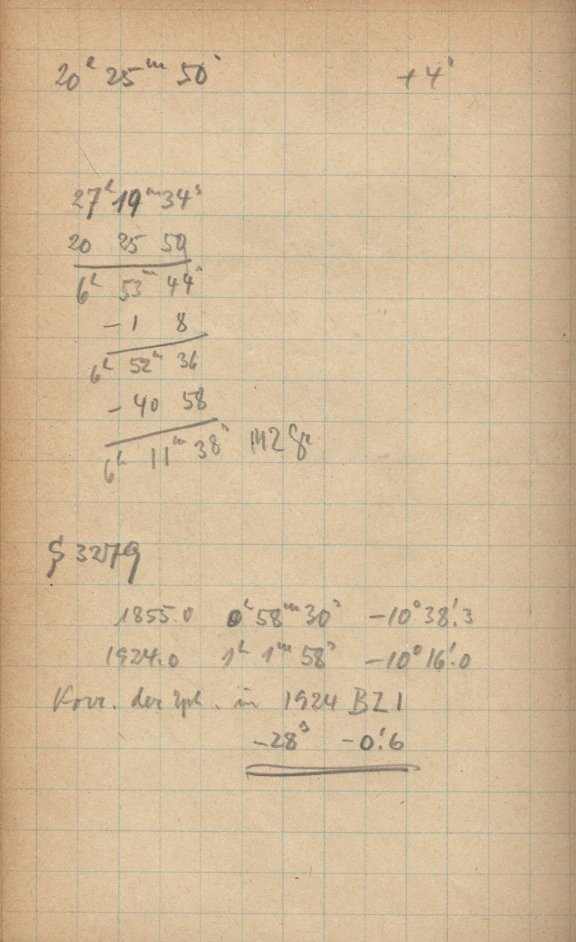 20ʰ 25ᵐ 50ˢ +4ˢ
27ʰ 19ᵐ 34ˢ
20 25 50
6ʰ 53ᵐ 44ˢ
-1 8
6ʰ 52ᵐ 36
-40 58
6ʰ 11ᵐ 38ˢ MZ Gr
1855.0 0ʰ 58ᵐ 30ˢ -10° 38'.3
1924.0 1ʰ 1ᵐ 58ˢ -10° 16'.0
Korr. der Eph. in 1924 BZ 1
-28ˢ -0'.6